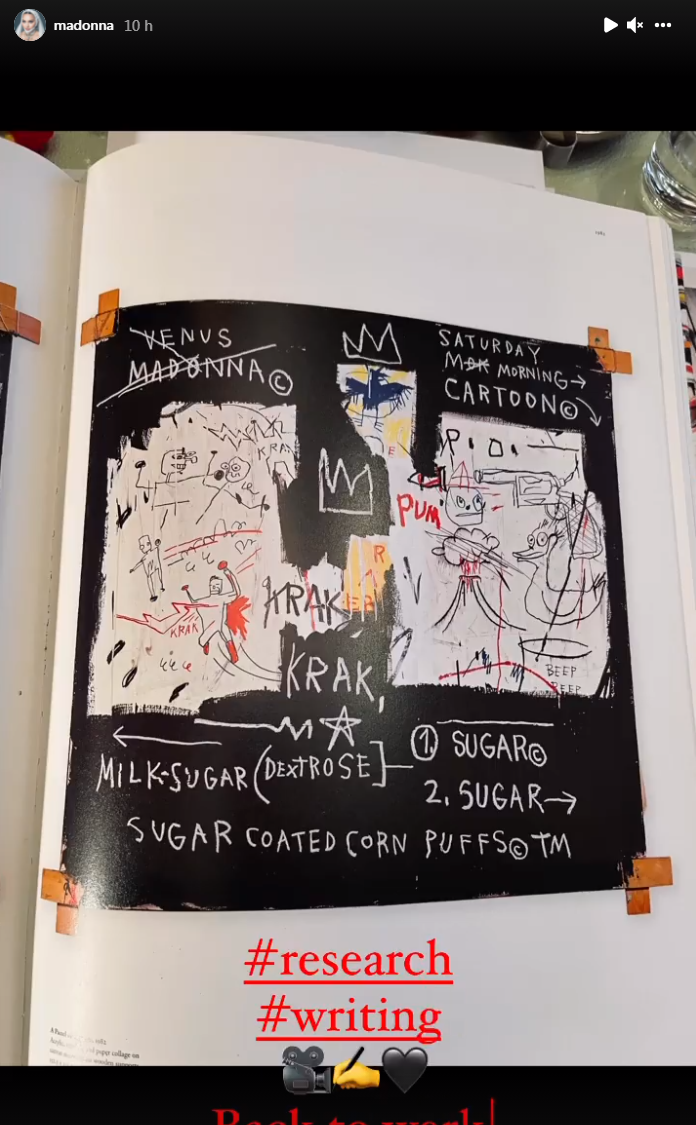 madonna 10 h
VENUS
MADONNA©
SATURDAY
MOR MORNING→
CARTOON©
KRAK
P.O.
PUM
R
E
KRAK
KRAK
KRAK,
BEEP
BEEP
← MILK-SUGAR (DEXTROSE]
1. SUGAR©
2. SUGAR→
SUGAR COATED CORN PUFFS© TM
#research
#writing
Back to work